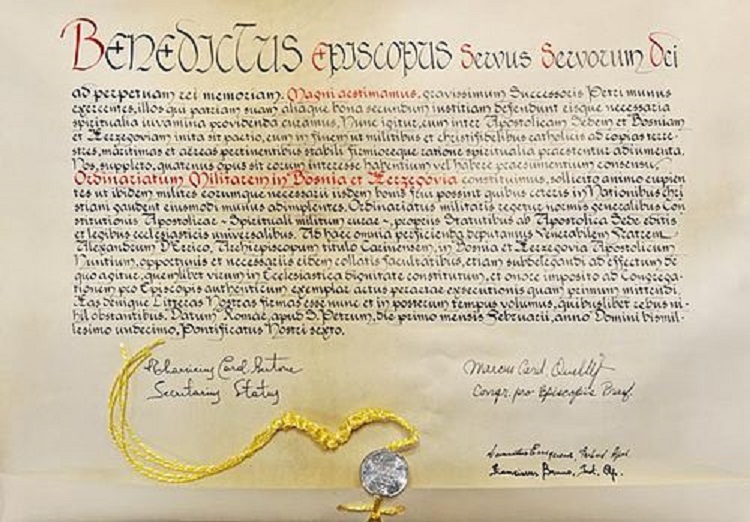 Benedictus Episcopus Servus Servorum Dei
ad perpetuam rei memoriam. Magni aestimamus, gravissimum Successoris Petri munus
exercentes, illos qui patriam suam aliaque bona secundum iustitiam defendunt eisque necessaria
spiritualia iuvamina providenda curamus. Nunc igitur, cum inter Apostolicam Sedem et Bosniam
et Herzegoviam inita sit pactio, eum in finem ut militibus et christifidelibus catholicis ad copias terre-
stres, maritimas et aëreas pertinentibus stabili firmioreque ratione spiritualia praestentur adiumenta,
Nos, suppleto, quatenus opus sit eorum interesse habentium vel habere praesumentium consensu,
Ordinariatum Militarem in Bosnia et Herzegovia constituimus, sollicito animo cupien-
tes ut ibidem milites eorumque necessarii iisdem bonis frui possint quibus ceteris in Nationibus chri
stiani gaudent eiusmodi munus adimplentes. Ordinariatus militaris regetur normis generalibus Con
stitutionis Apostolicae - Spirituali militum curae -, propriis Statutibus ab Apostolica Sede editis
et legibus ecclesiasticis universalibus. Ad haec omnia perficienda deputamus Venerabilem Fratrem
Alexandrum D'Errico, Archiepiscopum titulo Carinensem, in Bosnia et Herzegovia Apostolicum
Nuntium, opportunis et necessariis eidem collatis facultatibus, etiam subdelegandi ad effectum de
quo agitur, quemlibet virum in Ecclesiastica dignitate constitutum, et onore imposito ad Congrega-
tionem pro Episcopis authenticum exemplar actus peractae exsecutionis quam primum mittendi.
Has denique Litteras Nostras firmas esse nunc et in posterum tempus volumus, quibuslibet rebus ni-
hil obstantibus. Datum Romae, apud S. Petrum, die primo mensis Februarii, anno Domini bismil-
lesimo undecimo, Pontificatus Nostri sexto.
Card.
Secretarius Status
Marcus Card. Ouellet
Congr. pro Episcopis Praef.